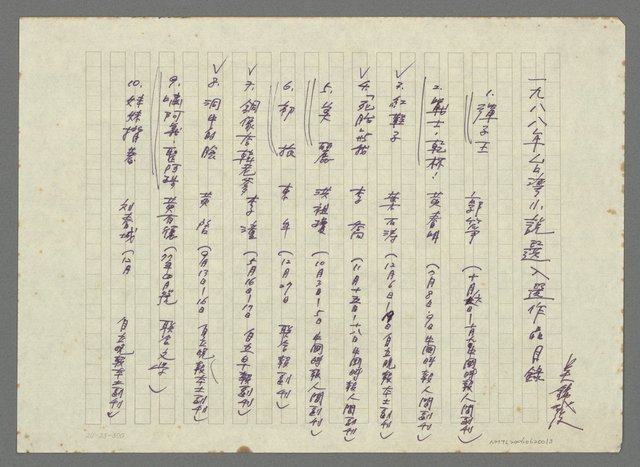 一九八八年台灣小說選入選作品目錄
吳錦發
1. 彈子王 郭箏 中國時報人間副刊)
2. 戰士,乾杯! 黃春明 (7月8日.9日 中國時報人間副刊)
3. 紅鞋子 葉石濤 (12月6日 自立晚報本土副刊)
4. 「死胎」的我 李喬 (11月十五日-十八日 中國時報人間副刊)
5. 吳 洪祖瓊 (10月2日-5日 中國時報人間副刊)
6. 郁 東年 (12月 聯合報副刊)
7. 銅像店韓老爹 李潼 (5月16日-17日 自立早報副刊)
8. 洞中的臉 黃 (9月13日-16日 自立晚報本土副刊)
9. 啞阿義.聾阿 黃有德 (77年 月號 聯合文學)
10. 妹妹揹著 劉春城 (12月 自立晚報本土副刊)
20×25=500
NMTL20060620013